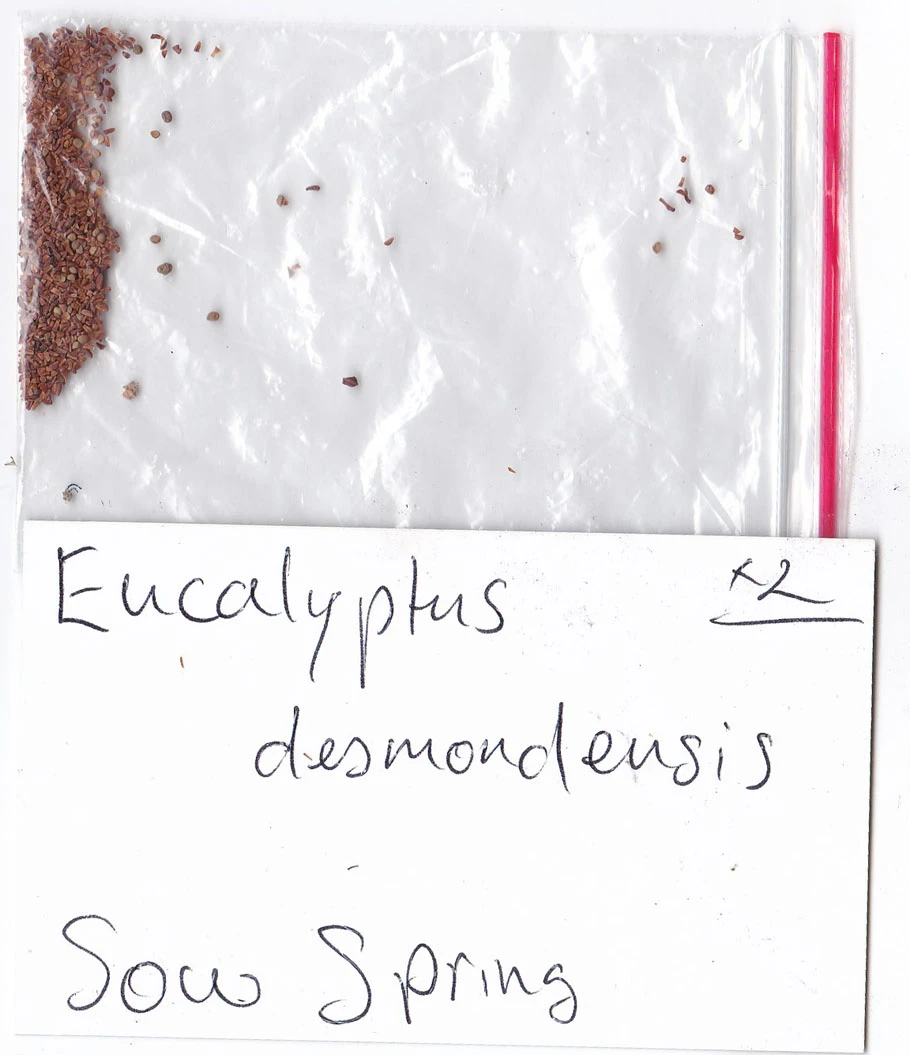 Eucalyptus x2
desmondensis
Sow Spring